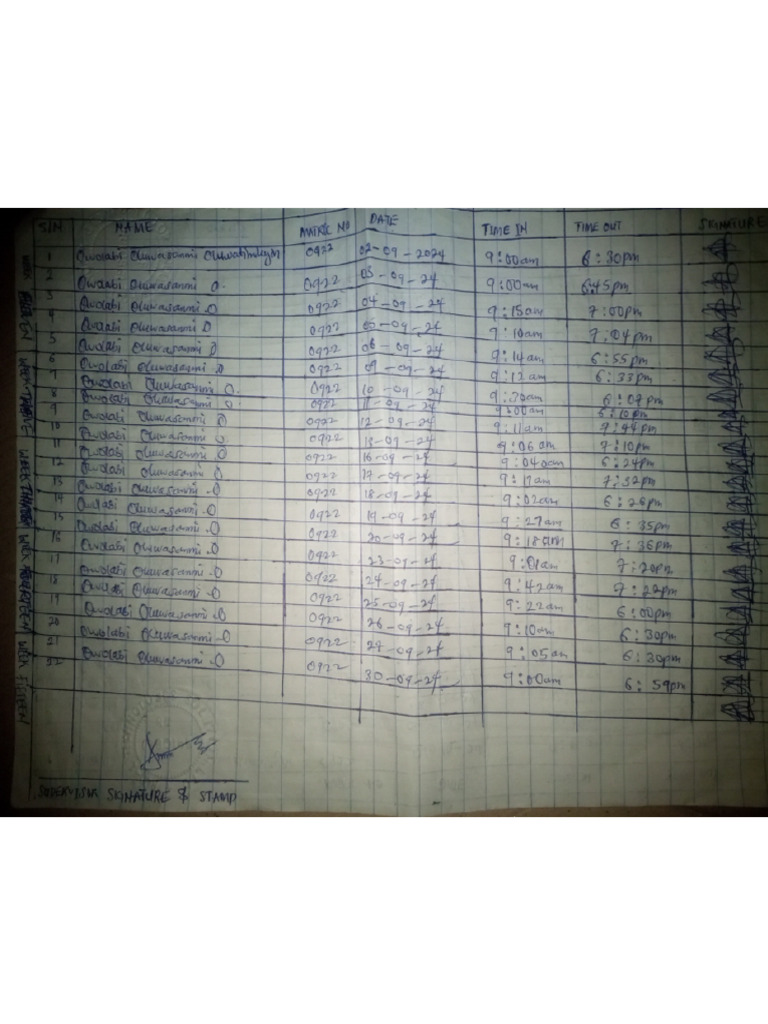 S/N NAME MATRIC NO DATE TIME IN TIME OUT SKINATURE
1 Owolabi Oluwasanmi 0922 02-09-2024 9:00am 6:30pm
2 Owolabi Oluwasanmi O. 0922 03-09-24 9:00am 6:45pm
3 Owolabi Oluwasanmi O 0922 04-09-24 9:15am 7:00pm
4 Owolabi Oluwasanmi O 0922 05-09-24 9:10am 7:04pm
5 Owolabi Oluwasanmi O 0922 06-09-24 9:14am 6:55pm
6 Owolabi Oluwasanmi O 0922 09-09-24 9:12am 6:33pm
7 Owolabi Oluwasanmi O. 0922 10-09-24 9:30am
8 Owolabi Oluwasanmi O 0922 11-09-24 9:00am 6:10pm
9 Owolabi Oluwasanmi O 0922 12-09-24 9:11am 7:44pm
10 Owolabi Oluwasanmi O 0922 13-09-24 9:06am 7:10pm
11 Owolabi Oluwasanmi O 0922 16-09-24 9:04am 6:24pm
12 Owolabi Oluwasanmi O 0922 17-09-24 9:11am 7:32pm
13 Owolabi Oluwasanmi O 0922 18-09-24 9:02am
14 Owolabi Oluwasanmi O 0922 19-09-24 9:27am 6:35pm
15 Owolabi Oluwasanmi O 0922 20-09-24 9:18am 7:36pm
16 Owolabi Oluwasanmi O 0922 23-09-24 9:01am 7:20pm
17 Owolabi Oluwasanmi O 0922 24-09-24 9:42am 7:22pm
18 Owolabi Oluwasanmi O 0922 25-09-24 9:22am 6:00pm
19 Owolabi Oluwasanmi O 0922 26-09-24 9:10am 6:30pm
20 Owolabi Oluwasanmi O 0922 9:05am 6:30pm
21 Owolabi Oluwasanmi O 0922 30-09-24 9:00am 6:59pm
SUPERVISOR SKINATURE & STAMP
WEEK WEEK TWELVE WEEK WEEK WEEK FIFTEEN